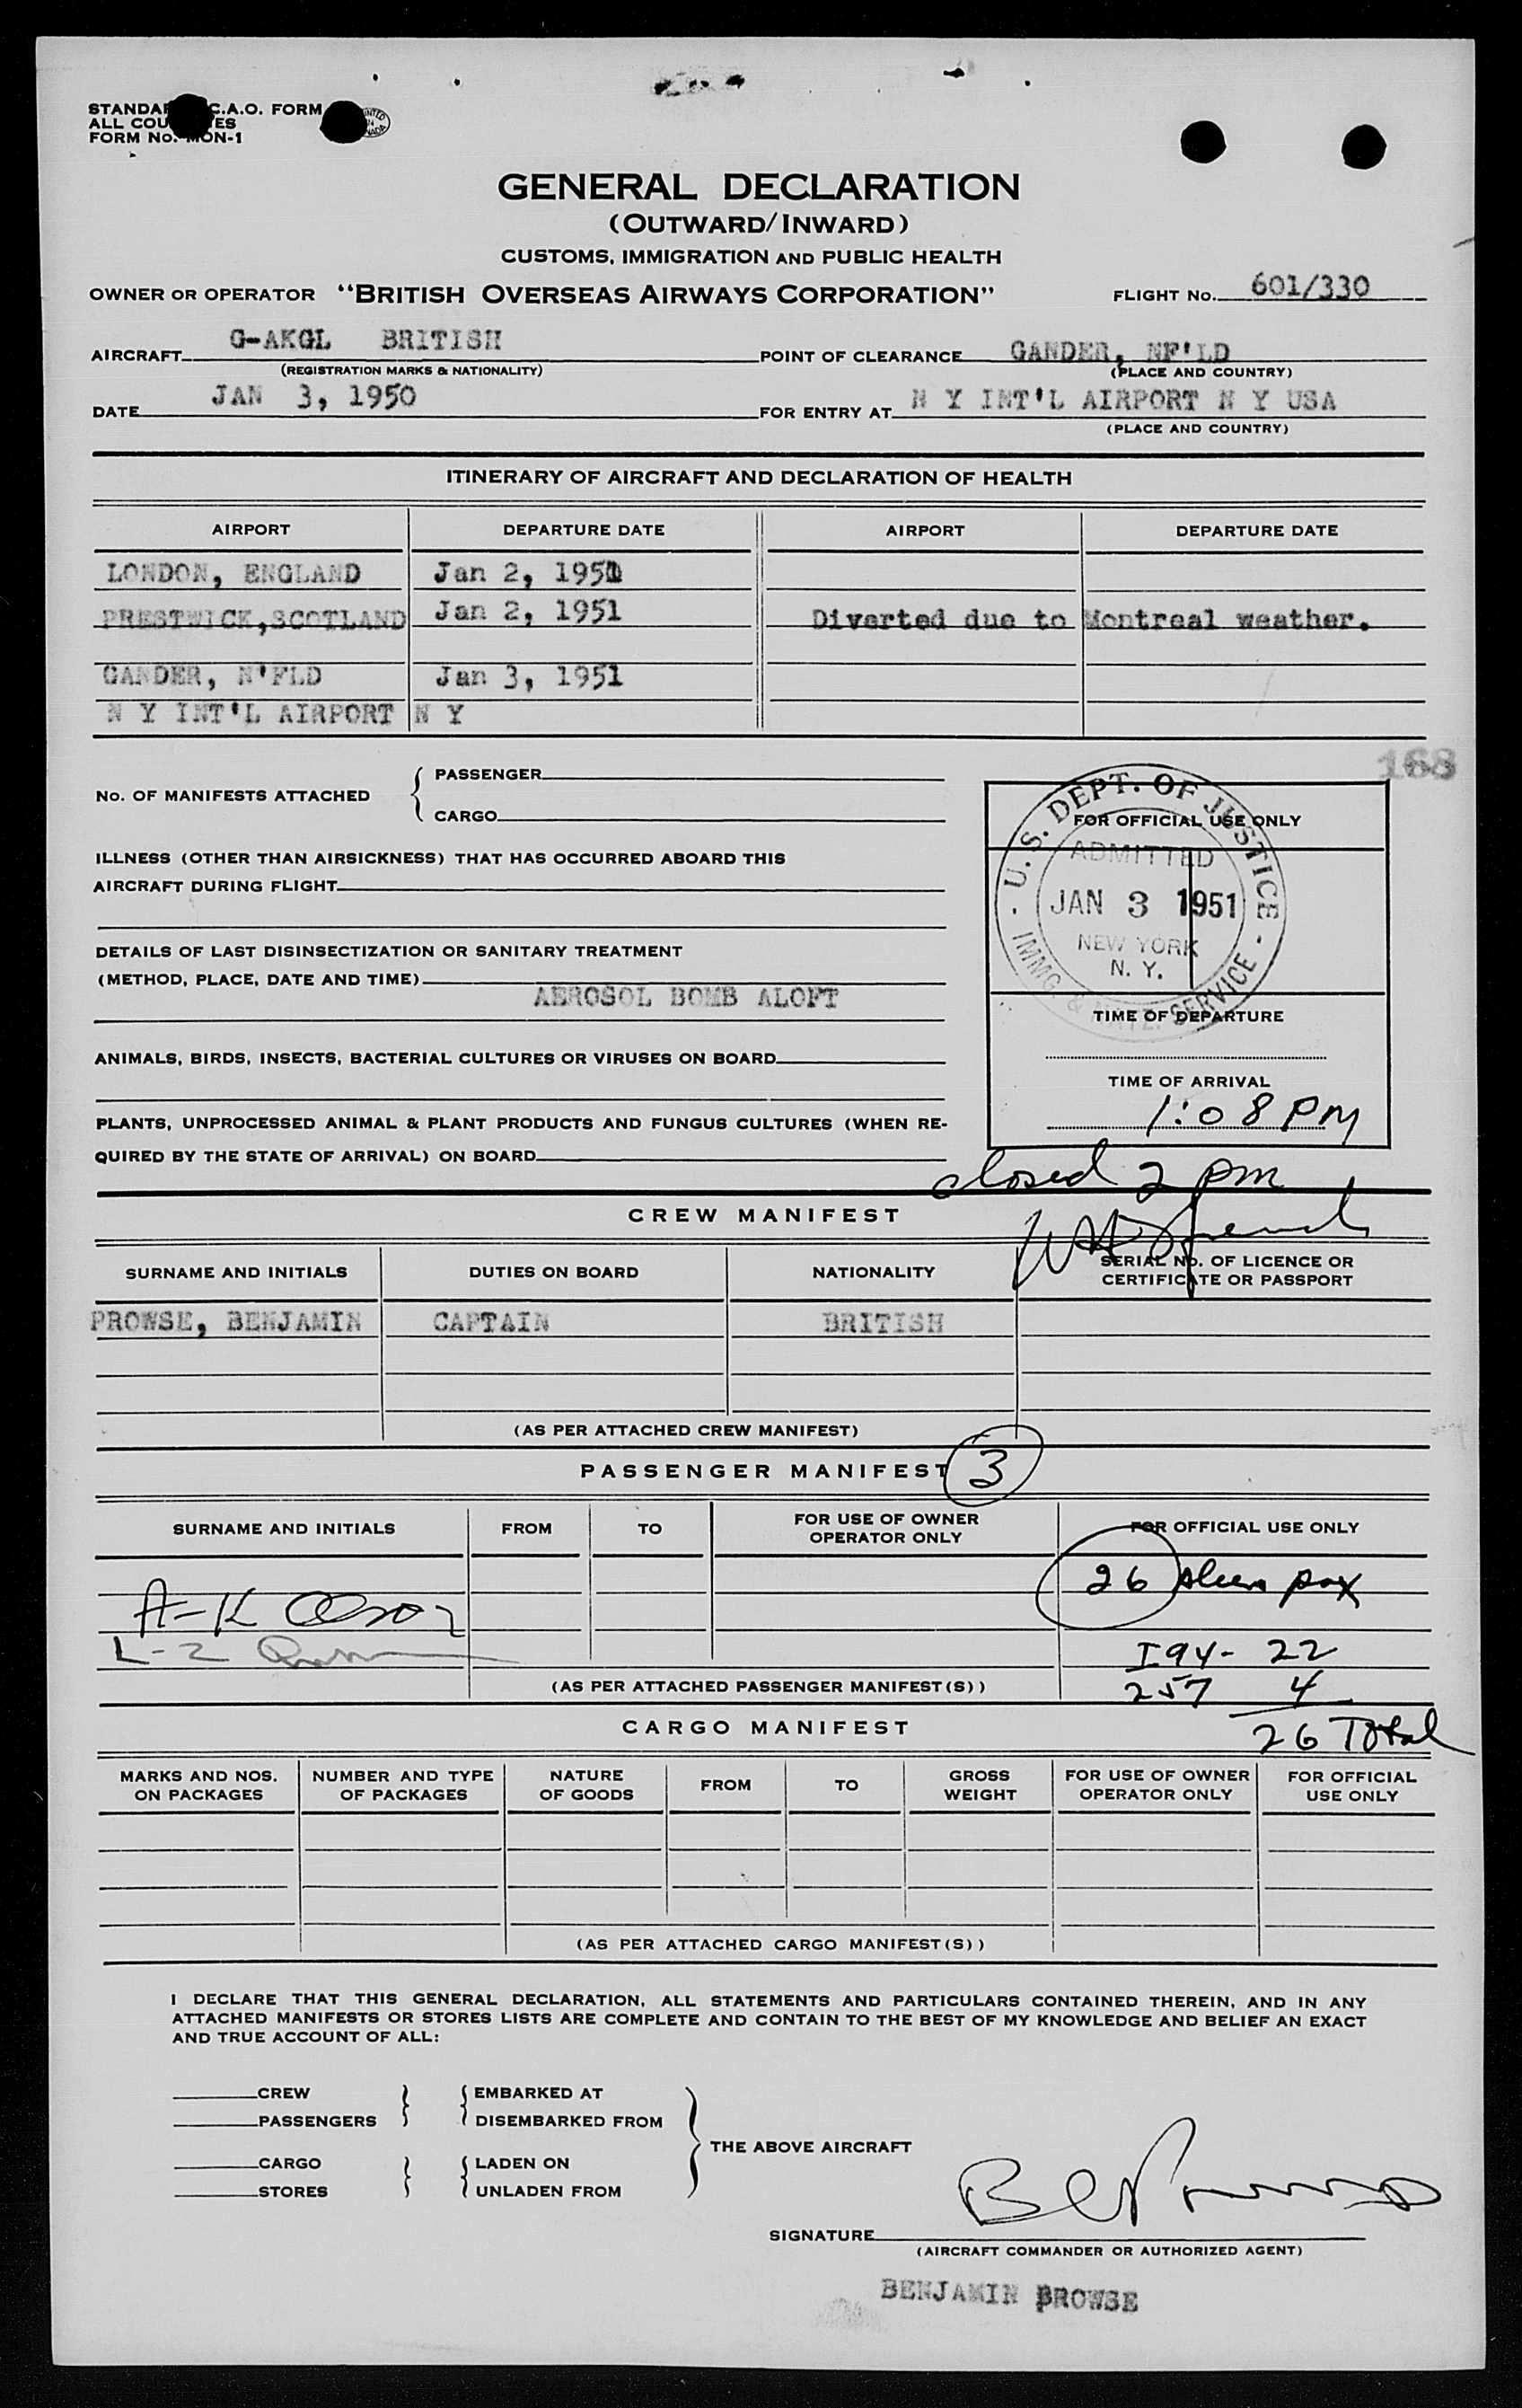 STANDARD I.C.A.O. FORM
ALL COUNTRIES
FORM No. MON-1
GENERAL DECLARATION
(OUTWARD/INWARD)
CUSTOMS, IMMIGRATION AND PUBLIC HEALTH
OWNER OR OPERATOR "BRITISH OVERSEAS AIRWAYS CORPORATION" FLIGHT No. 601/330
AIRCRAFT G-AKGL BRITISH POINT OF CLEARANCE GANDER, NF'LD
(REGISTRATION MARKS & NATIONALITY) (PLACE AND COUNTRY)
DATE JAN 3, 1950 FOR ENTRY AT N Y INT'L AIRPORT N Y USA
(PLACE AND COUNTRY)
ITINERARY OF AIRCRAFT AND DECLARATION OF HEALTH
AIRPORT DEPARTURE DATE AIRPORT DEPARTURE DATE
LONDON, ENGLAND Jan 2, 1951
PRESTWICK,SCOTLAND Jan 2, 1951 Diverted due to Montreal weather.
GANDER, N'FLD Jan 3, 1951
N Y INT'L AIRPORT N Y
168
No. OF MANIFESTS ATTACHED { PASSENGER
CARGO
FOR OFFICIAL USE ONLY
U.S. DEPT. OF JUSTICE
ADMITTED
JAN 3 1951
NEW YORK
N. Y.
IMMG. & NATZ. SERVICE
ILLNESS (OTHER THAN AIRSICKNESS) THAT HAS OCCURRED ABOARD THIS
AIRCRAFT DURING FLIGHT
DETAILS OF LAST DISINSECTIZATION OR SANITARY TREATMENT
(METHOD, PLACE, DATE AND TIME)
AEROSOL BOMB ALOFT
TIME OF DEPARTURE
ANIMALS, BIRDS, INSECTS, BACTERIAL CULTURES OR VIRUSES ON BOARD
TIME OF ARRIVAL
1:08 PM
PLANTS, UNPROCESSED ANIMAL & PLANT PRODUCTS AND FUNGUS CULTURES (WHEN RE-
QUIRED BY THE STATE OF ARRIVAL) ON BOARD
closed 2 pm
CREW MANIFEST
SURNAME AND INITIALS DUTIES ON BOARD NATIONALITY SERIAL NO. OF LICENCE OR
CERTIFICATE OR PASSPORT
PROWSE, BENJAMIN CAPTAIN BRITISH
(AS PER ATTACHED CREW MANIFEST)
PASSENGER MANIFEST 3
SURNAME AND INITIALS FROM TO FOR USE OF OWNER
OPERATOR ONLY FOR OFFICIAL USE ONLY
26 alien pax
A-K Olson
L-Z
I94- 22
(AS PER ATTACHED PASSENGER MANIFEST(S)) 257 4
26 Total
CARGO MANIFEST
MARKS AND NOS.
ON PACKAGES NUMBER AND TYPE
OF PACKAGES NATURE
OF GOODS FROM TO GROSS
WEIGHT FOR USE OF OWNER
OPERATOR ONLY FOR OFFICIAL
USE ONLY
(AS PER ATTACHED CARGO MANIFEST(S))
I DECLARE THAT THIS GENERAL DECLARATION, ALL STATEMENTS AND PARTICULARS CONTAINED THEREIN, AND IN ANY
ATTACHED MANIFESTS OR STORES LISTS ARE COMPLETE AND CONTAIN TO THE BEST OF MY KNOWLEDGE AND BELIEF AN EXACT
AND TRUE ACCOUNT OF ALL:
CREW } { EMBARKED AT
PASSENGERS DISEMBARKED FROM
THE ABOVE AIRCRAFT
CARGO } { LADEN ON
STORES UNLADEN FROM
SIGNATURE
(AIRCRAFT COMMANDER OR AUTHORIZED AGENT)
BENJAMIN PROWSE